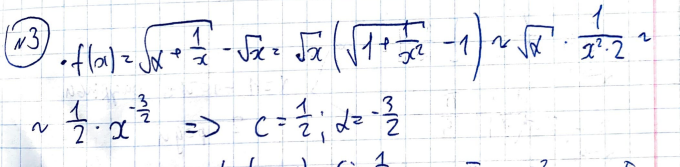 №3 · f(x) = √(x + 1/x) - √x = √x (√(1 + 1/x²) - 1) ~ √x · 1/(x²·2) ~
~ 1/2 · x^(-3/2) => c = 1/2; α = -3/2